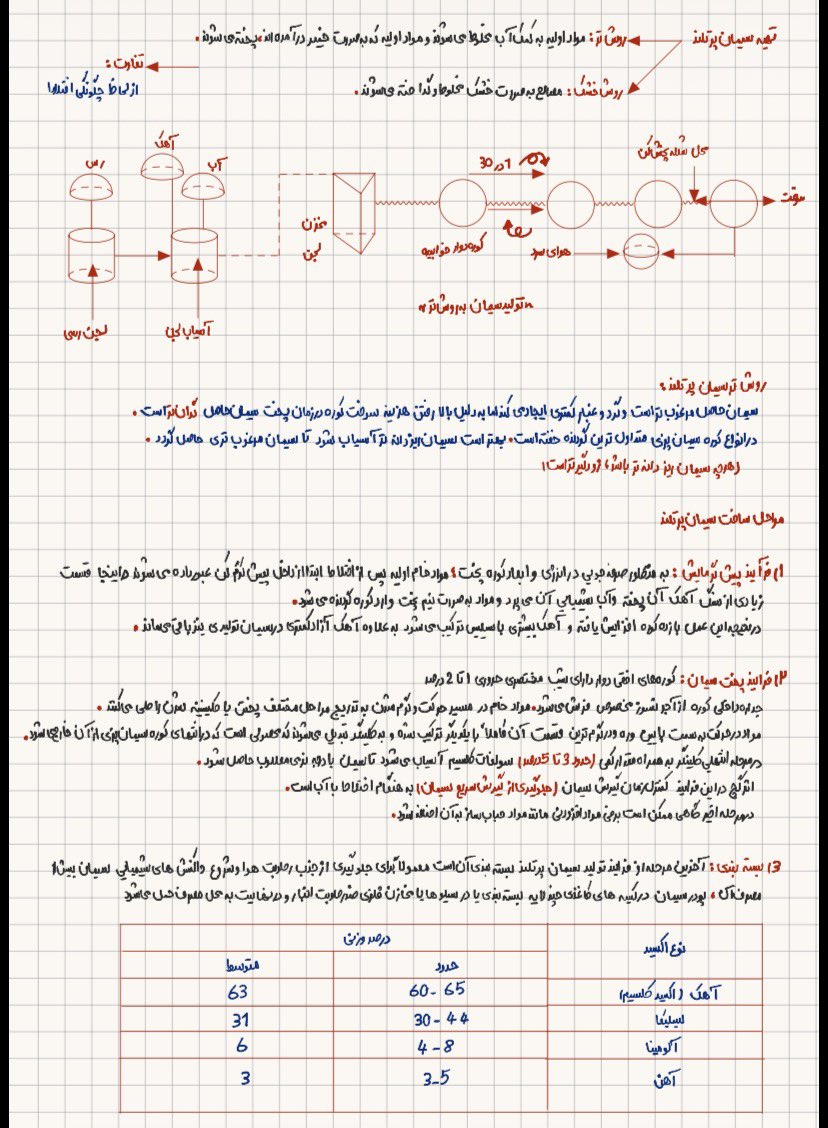 تهیه سیمان پرتلند
روش تر: مواد اولیه به کمک آب مخلوط می شوند و مواد اولیه که به صورت خمیر درآمده اند، پخته می شوند.
روش خشک: مصالح به صورت خشک مخلوط و گداخته می شوند.
تفاوت:
از لحاظ چگونگی اختلاط
رس
آهک
آب
لجن رسی
آسیاب لجن
مخزن
لجن
1 در 30
کوره دوار خوابیده
محل شعله پخش کن
سوخت
هوای سرد
"تولید سیمان به روش تر"
روش تر سیمان پرتلند:
سیمان حاصل مرغوب تر است و گرد و غبار کمتری ایجاد می کند اما به دلیل بالا رفتن هزینه سوخت کوره در زمان پخت سیمان حاصل گران تر است.
در انواع کوره سیمان پزی متداول ترین گردنده خفته است. بهتر است سیمان ریزدانه تر آسیاب شود تا سیمان مرغوب تری حاصل گردد.
(هرچه سیمان ریز دانه تر باشد، زودگیرتر است)
مراحل ساخت سیمان پرتلند
1) فرآیند پیش گرمایش: به منظور صرفه جویی در انرژی و ابعاد کوره پخت؛ مواد خام اولیه پس از اختلاط ابتدا از داخل پیش گرم کن عبور داده می شوند در اینجا قسمت
زیادی از سنگ آهک آن پخته و آب شیمیایی آن می پرد و مواد به صورت نیم پخت وارد کوره گردنده می شود.
در نتیجه این عمل بازده کوره افزایش یافته و آهک بیشتری با سیلیس ترکیب می شود به علاوه آهک آزاد کمتری در سیمان تولیدی نیز باقی می ماند.
2) فرایند پخت سیمان: کوره های افقی دوار دارای شیب مختصری حدود 1 تا 2 درصد
جداره داخلی کوره از آجر نسوز مخصوص فرش می شود. مواد خام در مسیر حرکت و گرم شدن به تدریج مراحل مختلف پختن یا کلینکر شدن را طی می کنند.
مواد در حرکت به سمت پایین کوره و در گرم ترین قسمت آن کاملاً با یکدیگر ترکیب شده و به کلینکر تبدیل می شوند که محصولی است که در انتهای کوره سیمان پزی از آن خارج می شود.
در مرحله انتهایی کلینکر به همراه مقدار کمی (حدود 3 تا 5 درصد) سولفات کلسیم آسیاب می شود تا سیمان با درجه نرمی مطلوب حاصل شود.
اثر گچ در این فرایند کنترل زمان گیرش سیمان (جلوگیری از گیرش سریع سیمان) به هنگام اختلاط با آب است.
در مرحله اخیر گاهی ممکن است برخی مواد افزودنی مانند مواد حباب ساز به آن اضافه شود.
3) بسته بندی: آخرین مرحله از فرایند تولید سیمان پرتلند بسته بندی آن است معمولاً برای جلوگیری از جذب رطوبت هوا و شروع واکنش های شیمیایی سیمان پیش از
مصرف آن، پودر سیمان در کیسه های کاغذی چند لایه بسته بندی یا در سیلو ها یا مخازن فلزی ضد رطوبت انبار و در نهایت به محل مصرف حمل می شود
نوع اکسید
درصد وزنی
حدود
متوسط
آهک (اکسید کلسیم)
60 - 65
63
سیلیکا
30 - 44
31
آلومینا
4 - 8
6
آهن
3 - 5
3